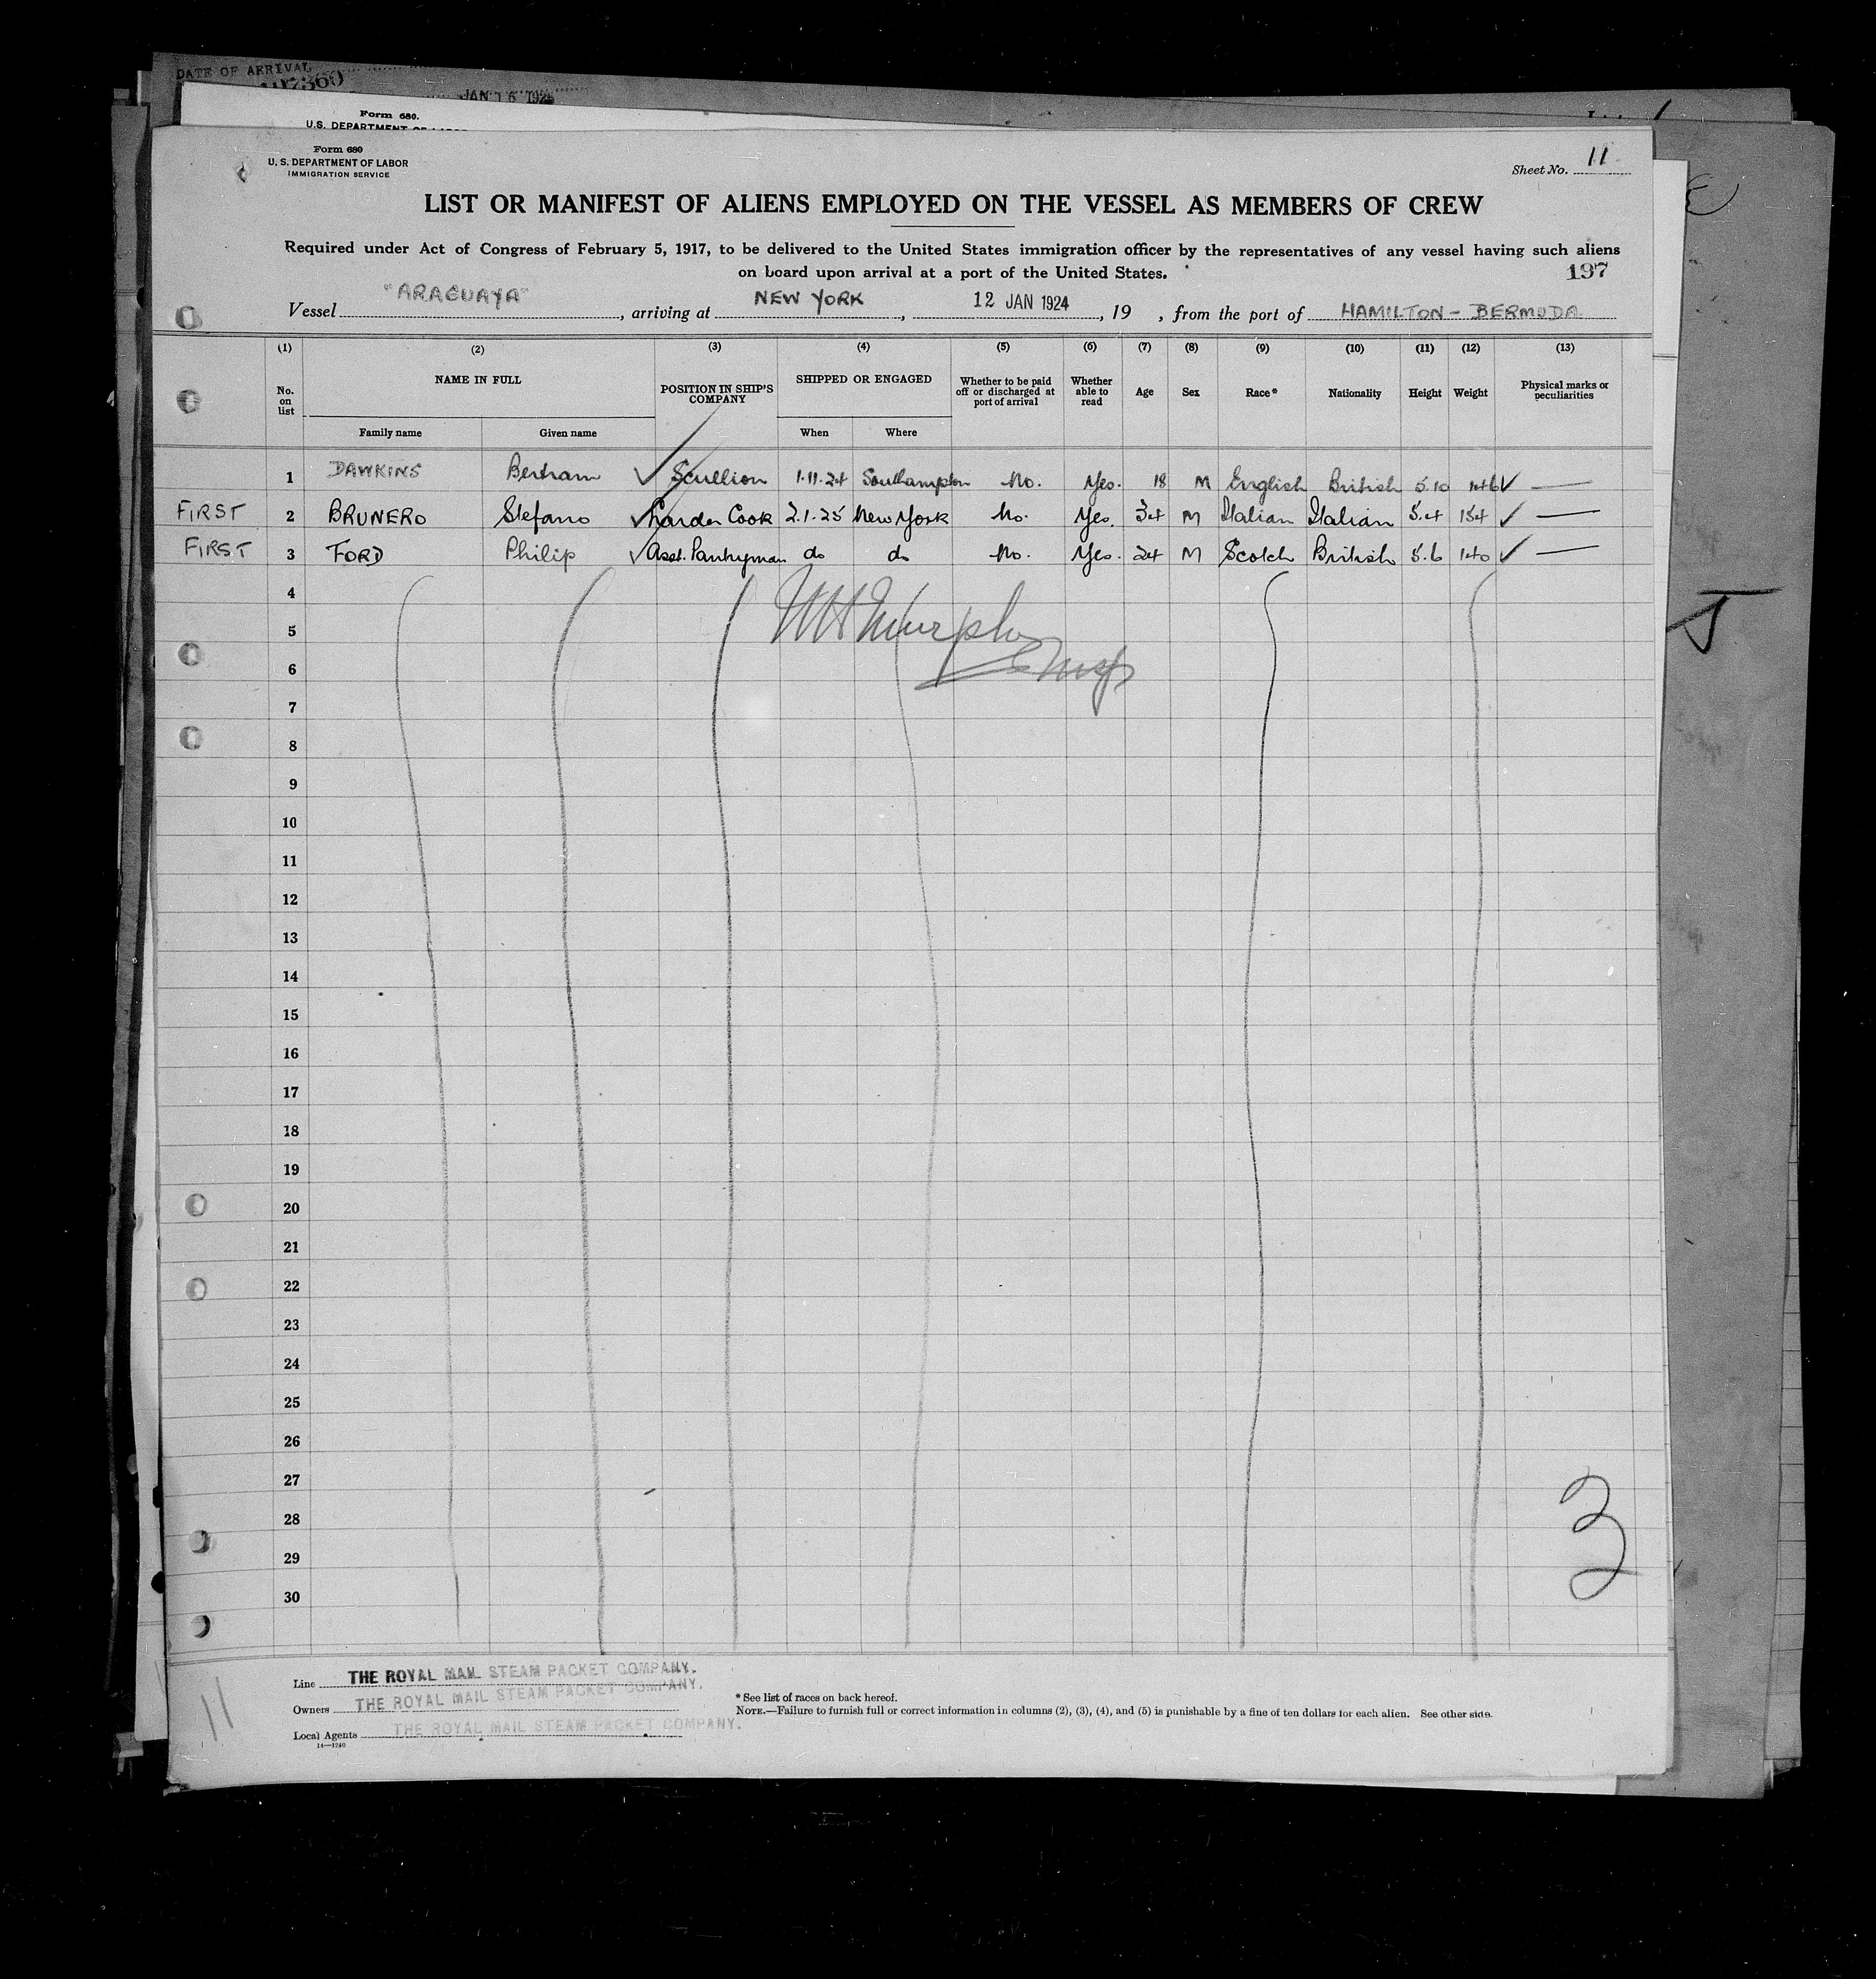 DATE OF ARRIVAL
107360
JAN 16 192
Form 680.
U.S. DEPARTMENT OF LABOR
Form 680
U. S. DEPARTMENT OF LABOR
IMMIGRATION SERVICE
Sheet No. 11
LIST OR MANIFEST OF ALIENS EMPLOYED ON THE VESSEL AS MEMBERS OF CREW
Required under Act of Congress of February 5, 1917, to be delivered to the United States immigration officer by the representatives of any vessel having such aliens
on board upon arrival at a port of the United States.
197
Vessel "ARAGUAYA", arriving at NEW YORK, 12 JAN 1924, 19 , from the port of HAMILTON - BERMUDA
(1) (2) (3) (4) (5) (6) (7) (8) (9) (10) (11) (12) (13)
No. on list NAME IN FULL POSITION IN SHIP'S COMPANY SHIPPED OR ENGAGED Whether to be paid off or discharged at port of arrival Whether able to read Age Sex Race* Nationality Height Weight Physical marks or peculiarities
Family name Given name When Where
1 DAWKINS Bertram ✓ Scullion 1.11.24 Southampton No. Yes. 18 M English British 5.10 146 ✓ —
FIRST 2 BRUNERO Stefano ✓ Larder Cook 2.1.25 New York No. Yes. 34 M Italian Italian 5.4 154 ✓ —
FIRST 3 FORD Philip ✓ Asst. Pantryman do do No. Yes. 24 M Scotch British 5.6 140 ✓ —
4
5 Murphy
6
7
8
9
10
11
12
13
14
15
16
17
18
19
20
21
22
23
24
25
26
27
28
29
30
3
11
Line THE ROYAL MAIL STEAM PACKET COMPANY.
Owners THE ROYAL MAIL STEAM PACKET COMPANY.
Local Agents THE ROYAL MAIL STEAM PACKET COMPANY.
14—1240
* See list of races on back hereof.
NOTE.—Failure to furnish full or correct information in columns (2), (3), (4), and (5) is punishable by a fine of ten dollars for each alien. See other side.